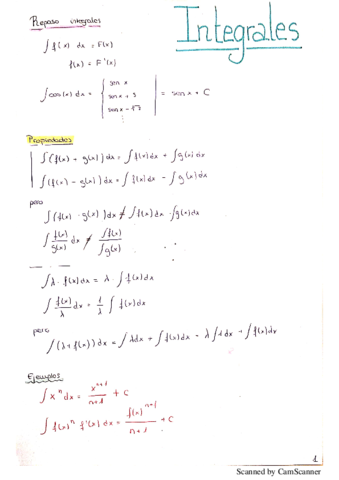 Repaso integrales
Integrales
∫ f(x) dx = F(x)
f(x) = F'(x)
∫ cos(x) dx = { sen x
sen x + 3
sen x - √3
⋮ } = sen x + C
Propiedades
∫ (f(x) + g(x)) dx = ∫ f(x) dx + ∫ g(x) dx
∫ (f(x) - g(x)) dx = ∫ f(x) dx - ∫ g(x) dx
pero
∫ (f(x) · g(x)) dx ≠ ∫ f(x) dx · ∫ g(x) dx
∫ f(x)/g(x) ≠ ∫ f(x) / ∫ g(x)
∫ λ · f(x) dx = λ · ∫ f(x) dx
∫ f(x)/λ dx = 1/λ ∫ f(x) dx
pero
∫ (λ + f(x)) dx = ∫ λ dx + ∫ f(x) dx = λ ∫ 1 dx + ∫ f(x) dx
Ejemplos
∫ xⁿ dx = xⁿ⁺¹/n+1 + C
∫ f(x)ⁿ f'(x) dx = f(x)ⁿ⁺¹/n+1 + C
1
Scanned by CamScanner